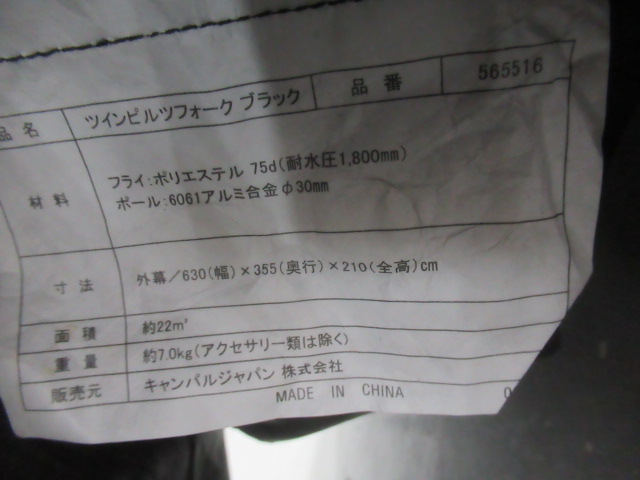 品名 ツインピルツフォーク ブラック 品番 565516
材料 フライ:ポリエステル 75d(耐水圧1,800mm)
ポール:6061アルミ合金φ30mm
寸法 外幕/630(幅)×355(奥行)×210(全高)cm
面積 約22㎡
重量 約7.0kg(アクセサリー類は除く)
販売元 キャンパルジャパン 株式会社
MADE IN CHINA